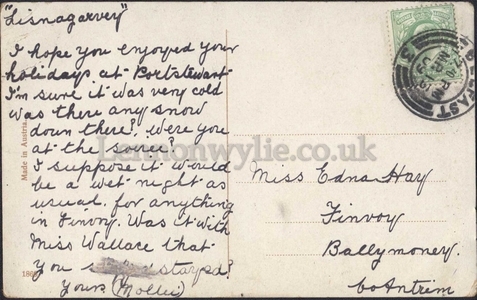 "Lisnagarvey"
I hope you enjoyed your
holidays at Portstewart
I'm sure it was very cold
was there any snow
down there? Were you
at the soiree?
I suppose it would
be a wet night as
usual. for anything
in Finvoy. Was it with
Miss Wallace that
you stayed?
Yours (Mollie)
Made in Austria.
Miss Edna Hay
Finvoy
Ballymoney.
Co Antrim
BELFAST
Lennonwylie.co.uk